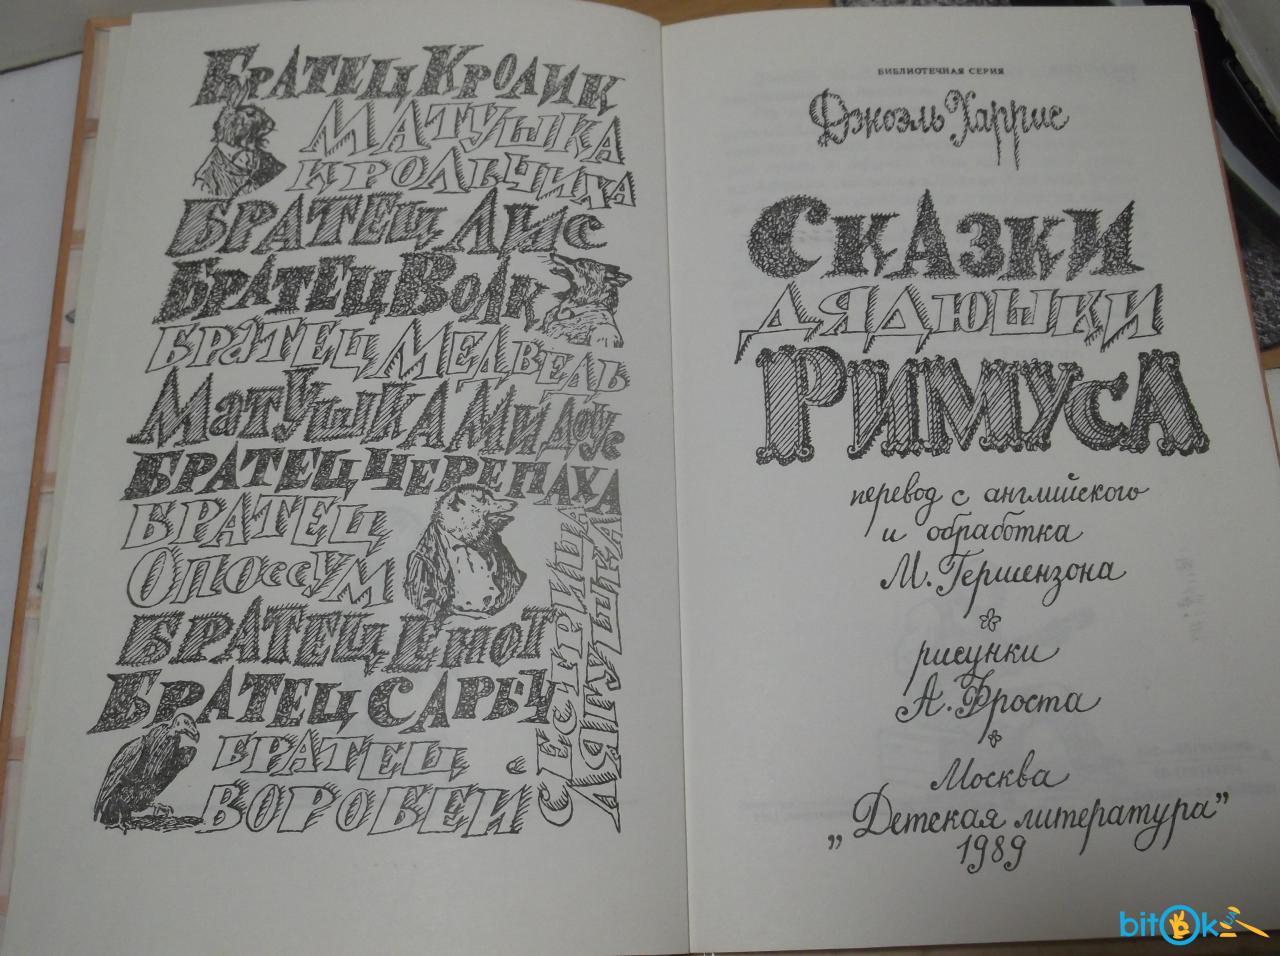 Братец Кролик
Матушка
Крольчиха
Братец Лис
Братец Волк
Братец Медведь
Матушка Мидоус
Братец Черепаха
Братец
Опоссум
Братец Енот
Братец Сарыч
Братец
Воробей
Сестрица
Лягушка
БИБЛИОТЕЧНАЯ СЕРИЯ
Джоэль Харрис
Сказки
дядюшки
Римуса
перевод с английского
и обработка
М. Гершензона
рисунки
А. Фроста
Москва
„Детская литература”
1989
bitok.ua